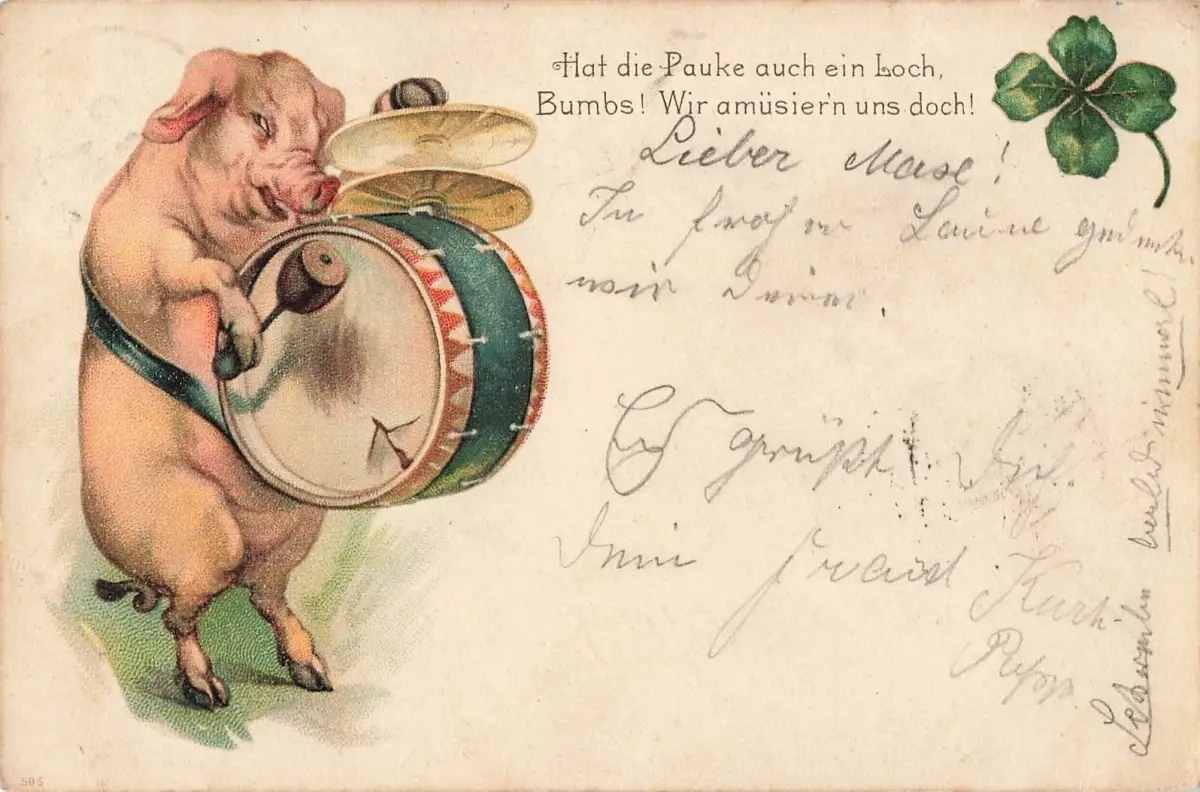 Hat die Pauke auch ein Loch,
Bumbs! Wir amüsier'n uns doch!
Lieber Max!
In froher Laune gedenken
wir Deiner.
Es grüßt Dich
Dein Freund Kurt
bald nimmal!
595